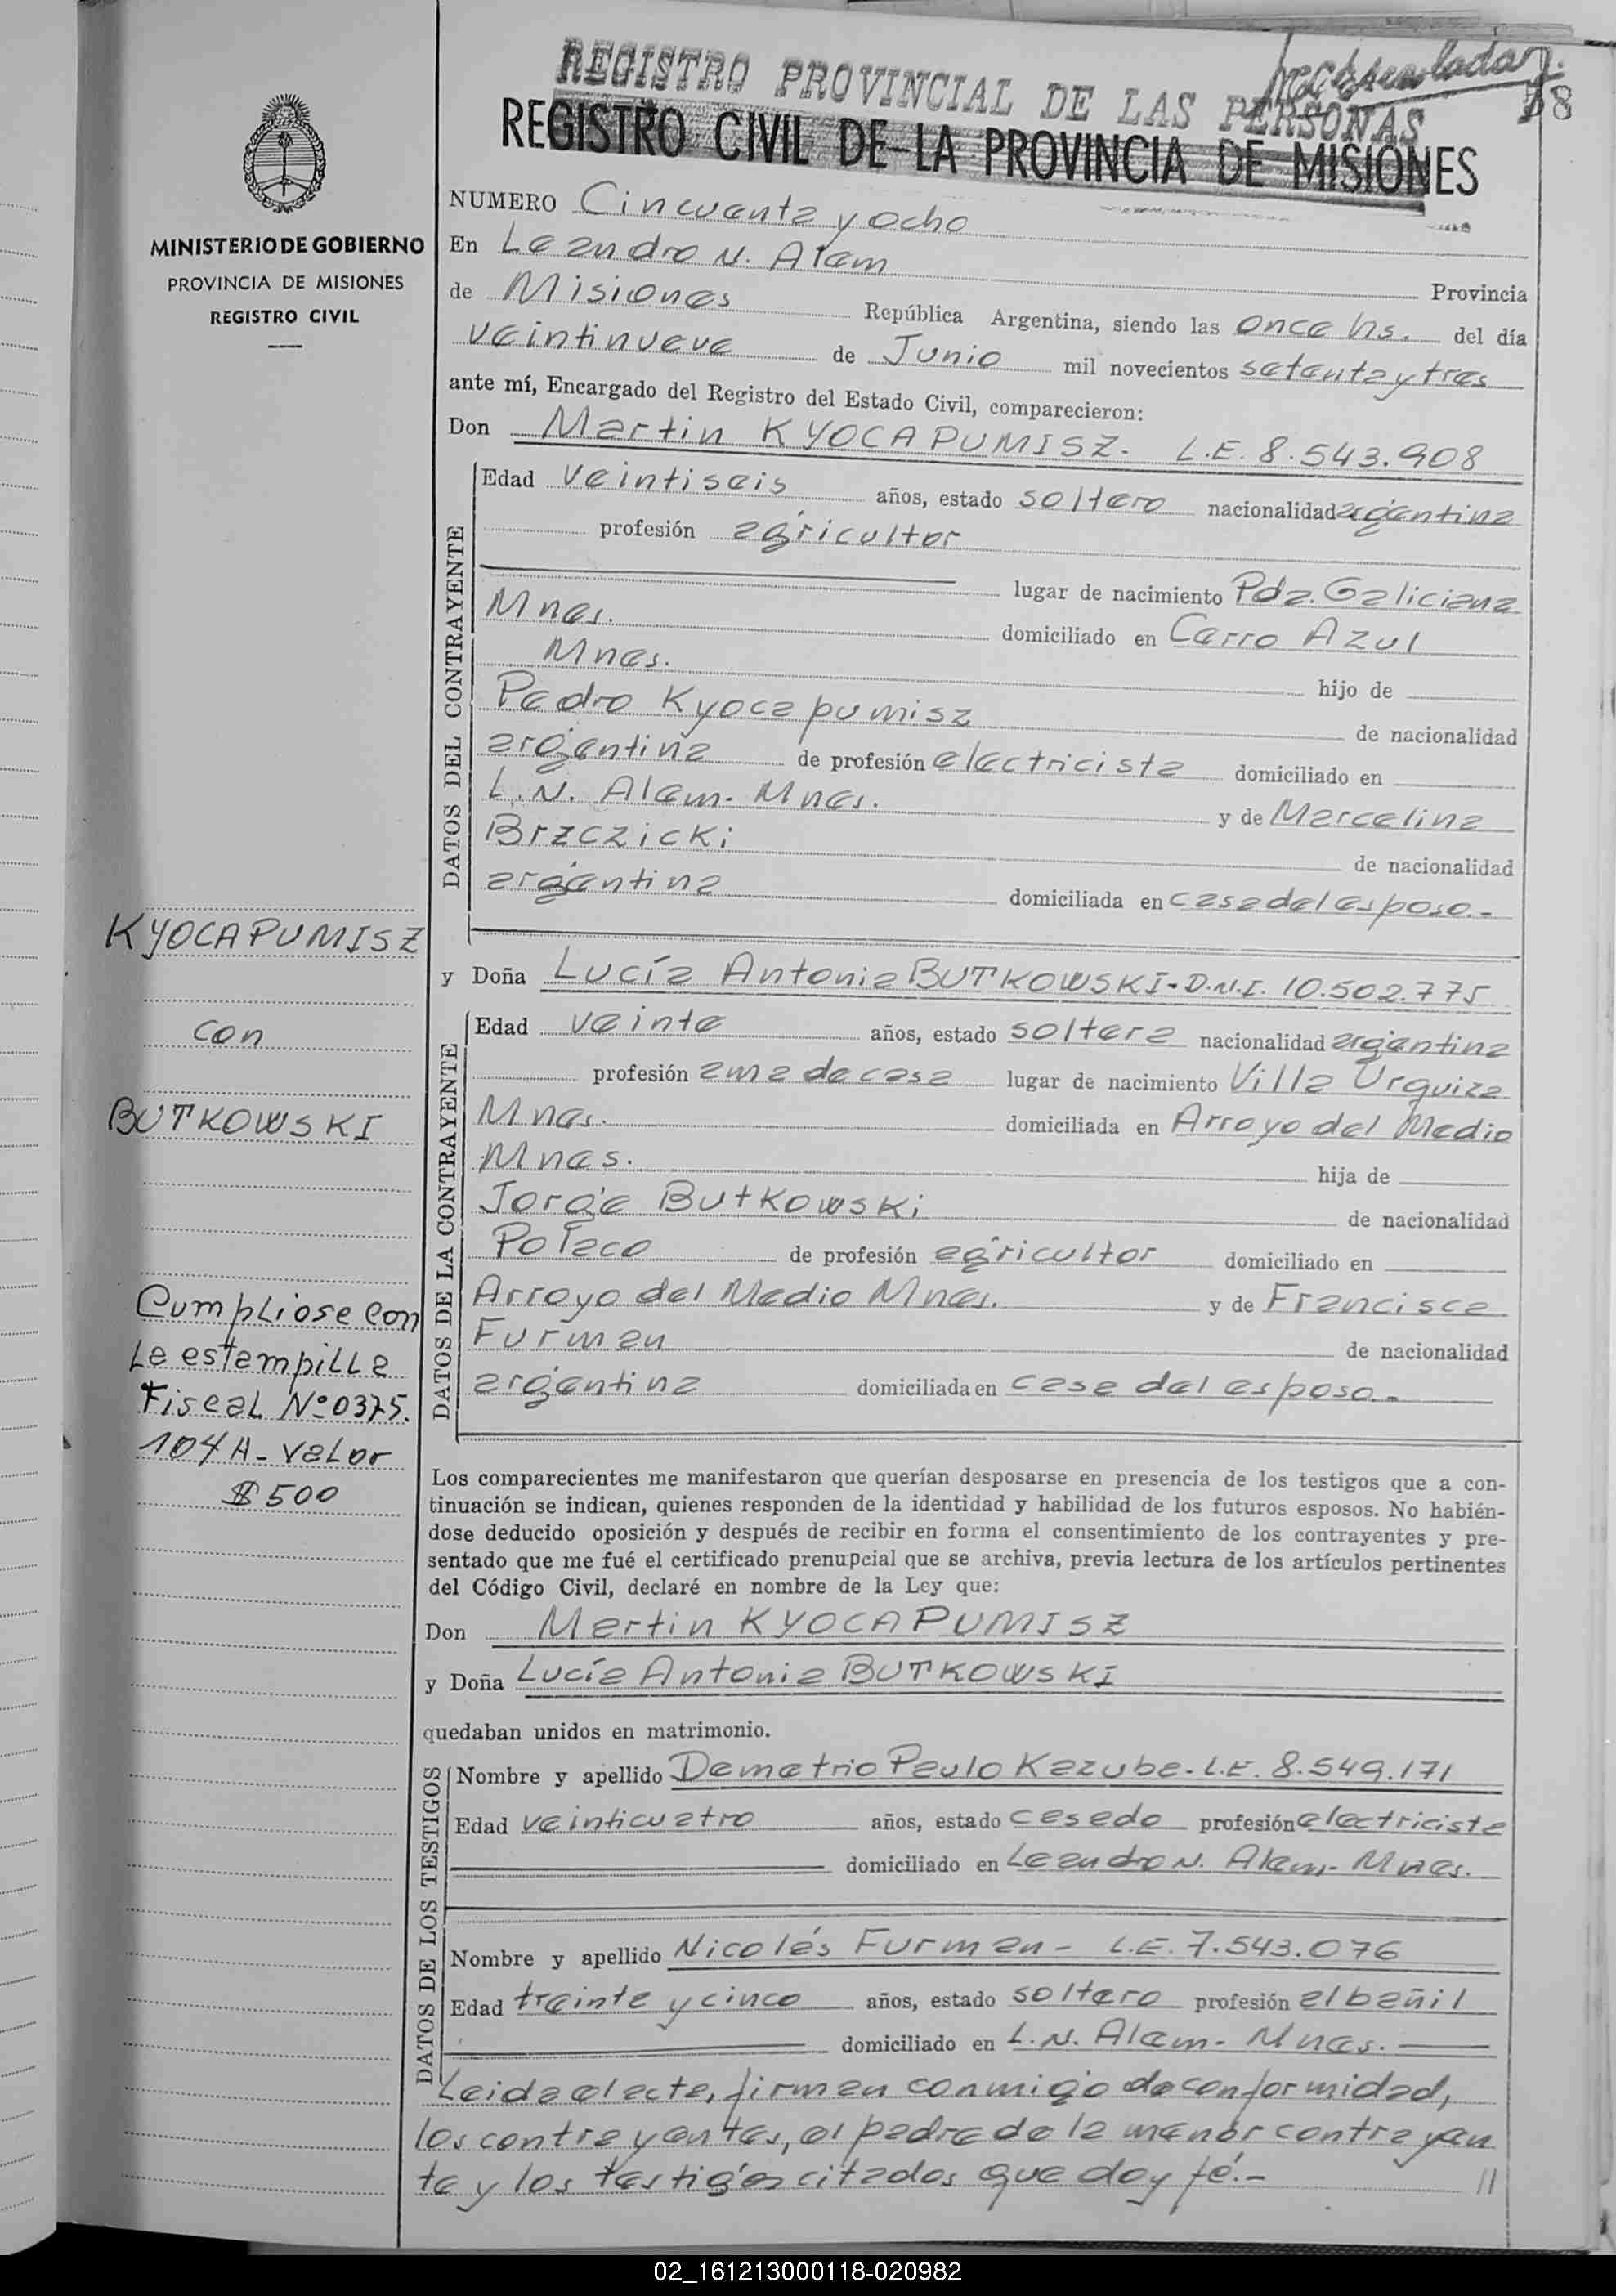 REGISTRO PROVINCIAL DE LAS PERSONAS
58
REGISTRO CIVIL DE LA PROVINCIA DE MISIONES
MINISTERIO DE GOBIERNO
PROVINCIA DE MISIONES
REGISTRO CIVIL
NUMERO Cincuenta y ocho
En Leandro N. Alem
Provincia
de Misiones República Argentina, siendo las once hs. del día
veintinueve de Junio mil novecientos setenta y tres
ante mí, Encargado del Registro del Estado Civil, comparecieron:
Don Martin KYOCAPUMISZ. L.E. 8.543.908
DATOS DEL CONTRAYENTE
Edad veintiseis años, estado soltero nacionalidad agentina
profesión agricultor
lugar de nacimiento Pda. Galiciana
Mnes. domiciliado en Cerro Azul
Mnes. hijo de
Pedro Kyocapumisz de nacionalidad
argentina de profesión electricista domiciliado en
L. N. Alem. Mnes. y de Marcelina
Brzczicki de nacionalidad
argentina domiciliada en casa del esposo.-
KYOCAPUMISZ
con
BUTKOWSKI
Cumpliose con
la estampilla
Fiscal Nº 0375.
104 A- valor
$ 500
y Doña Lucía Antonia BUTKOWSKI- D.N.I. 10.502.775
DATOS DE LA CONTRAYENTE
Edad veinte años, estado soltera nacionalidad argentina
profesión ama de casa lugar de nacimiento Villa Urquiza
Mnes. domiciliada en Arroyo del Medio
Mnes. hija de
Jorge Butkowski de nacionalidad
Polaco de profesión agricultor domiciliado en
Arroyo del Medio Mnes. y de Francisca
Furman de nacionalidad
argentina domiciliada en casa del esposo.-
Los comparecientes me manifestaron que querían desposarse en presencia de los testigos que a con-
tinuación se indican, quienes responden de la identidad y habilidad de los futuros esposos. No habién-
dose deducido oposición y después de recibir en forma el consentimiento de los contrayentes y pre-
sentado que me fué el certificado prenupcial que se archiva, previa lectura de los artículos pertinentes
del Código Civil, declaré en nombre de la Ley que:
Don Martin KYOCAPUMISZ
y Doña Lucía Antonia BUTKOWSKI
quedaban unidos en matrimonio.
DATOS DE LOS TESTIGOS
Nombre y apellido Demetrio Paulo Kazube- L.E. 8.549.171
Edad veinticuatro años, estado casado profesión electricista
domiciliado en Leandro N. Alem- Mnes.
Nombre y apellido Nicolás Furman- L.E. 7.543.076
Edad treinta y cinco años, estado soltero profesión albañil
domiciliado en L. N. Alem- Mnes.
Leida el acta, firman conmigo de conformidad,
los contrayentes, el padre de la menor contrayen
te y los testigos citados que doy fé.- //
02_161213000118-020982